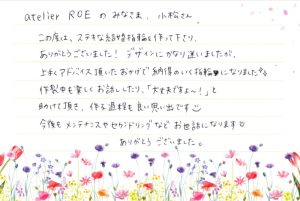 atelier ROE の みなさま、小松さん
この度は、ステキな結婚指輪を作って下さり、
ありがとうございました！ デザインにかなり迷いましたが、
上手くアドバイス頂いたおかげで納得のいく指輪になりました
作製中も楽しくお話ししたり、「大丈夫ですよ〜！」と
助けて頂き、作る過程も良い思い出です
今後もメンテナンスやセカンドリングなど お世話になります
ありがとう ございました。